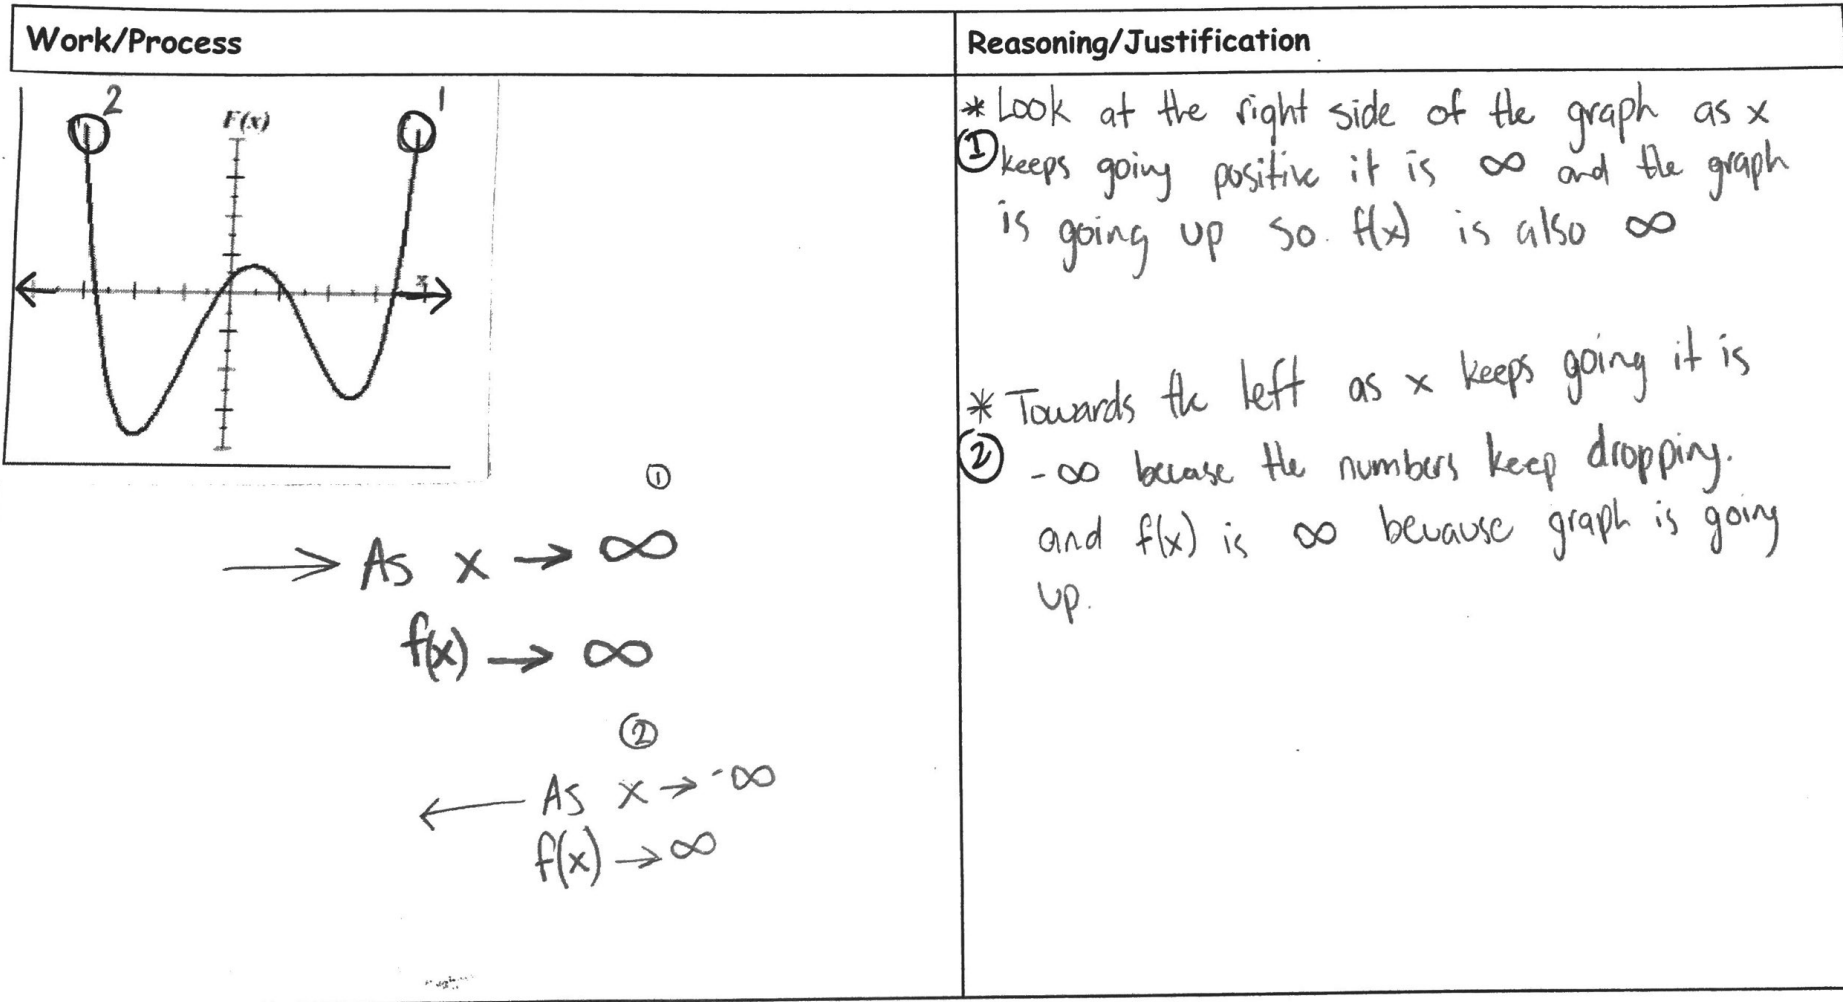 Work/Process
Reasoning/Justification
2
1
F(x)
x
* Look at the right side of the graph as x
① keeps going positive it is ∞ and the graph
is going up so f(x) is also ∞
* Towards the left as x keeps going it is
② -∞ becase the numbers keep dropping.
and f(x) is ∞ beuause graph is going
up.
①
→ As x → ∞
f(x) → ∞
②
← As x → -∞
f(x) → ∞